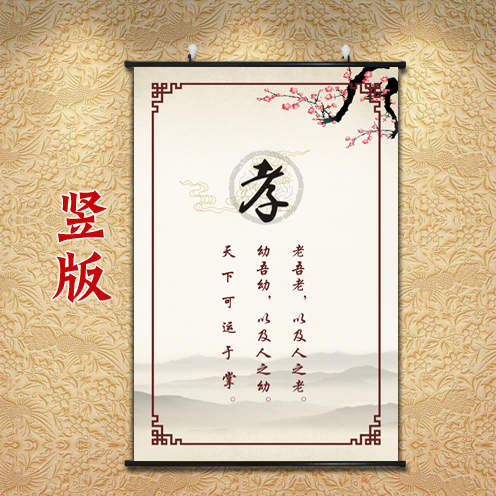 竖版
孝
老吾老，以及人之老。
幼吾幼，以及人之幼。
天下可运于掌。